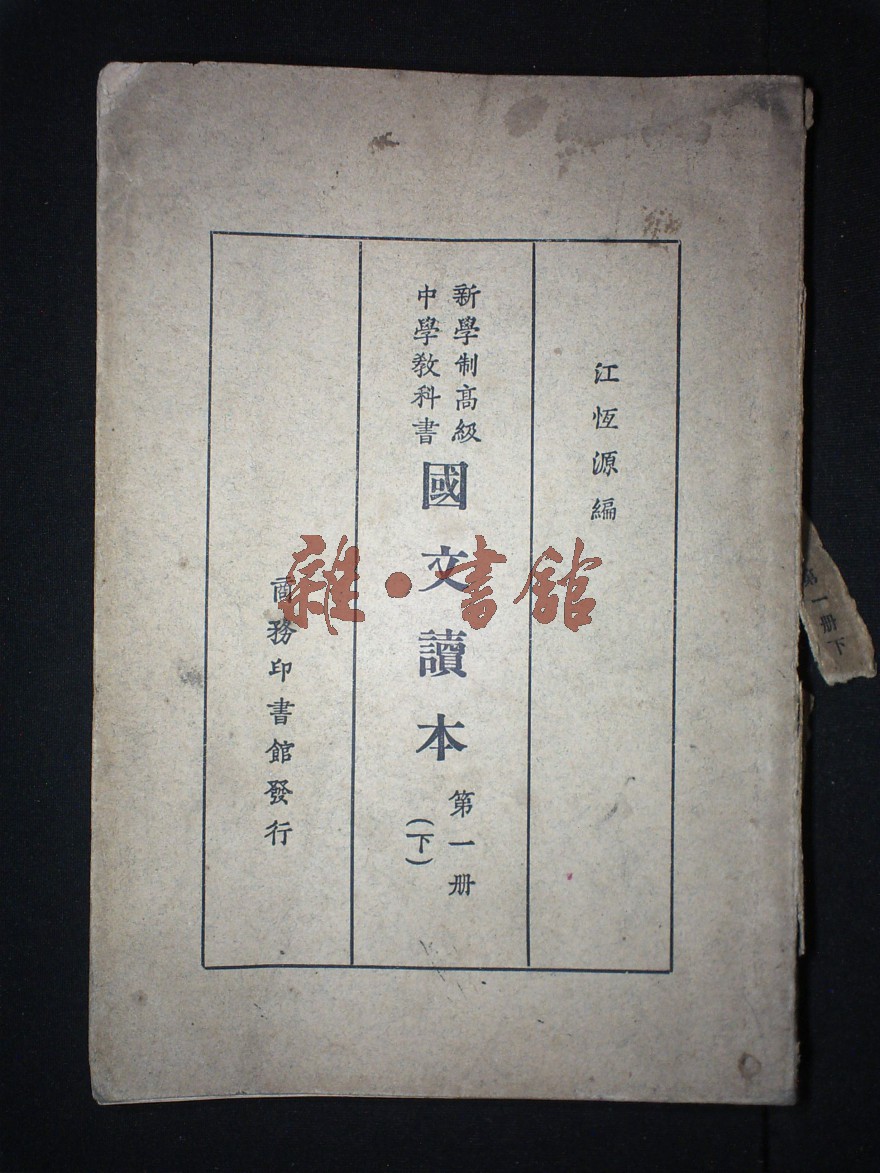 江恆源編
新學制高級
中學教科書
國文讀本
第一册
(下)
商務印書館發行
雜·書館
第一册下